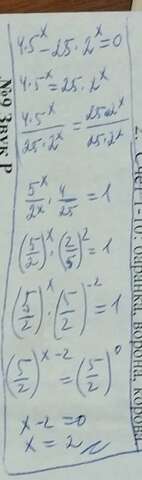 4·5^x − 25·2^x = 0
4·5^x = 25·2^x
4·5^x / 25·2^x = 25·2^x / 25·2^x
5^x / 2^x · 4/25 = 1
(5/2)^x · (2/5)^2 = 1
(5/2)^x · (5/2)^-2 = 1
(5/2)^x-2 = (5/2)^0
x-2 = 0
x = 2
№9 Звук Р
2. Счёт 1-10: баранка, ворона, корова